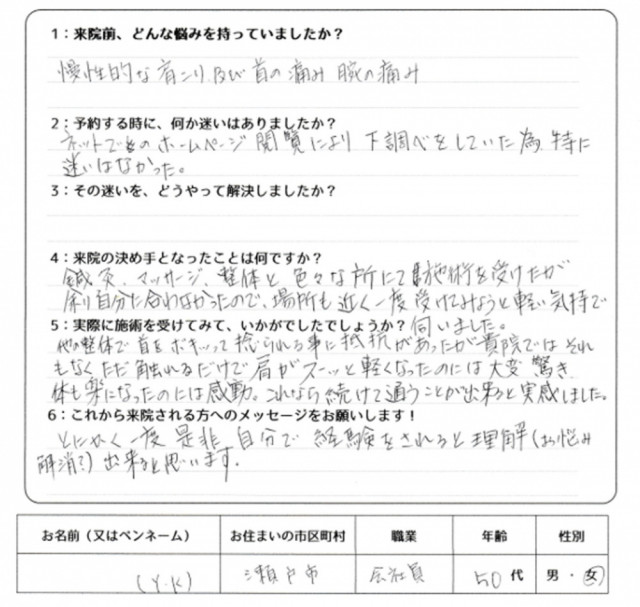 1：来院前、どんな悩みを持っていましたか？
慢性的な肩こり及び首の痛み 腕の痛み
2：予約する時に、何か迷いはありましたか？
ネットでのホームページ閲覧により下調べをしていた為、特に
迷いはなかった。
3：その迷いを、どうやって解決しましたか？
4：来院の決め手となったことは何ですか？
鍼灸、マッサージ、整体と色々な所にて施術を受けたが
余り自分に合わなかったので、場所も近く一度受けてみようと軽い気持で
5：実際に施術を受けてみて、いかがでしたでしょうか？ 伺いました。
他の整体で首をボキッって捻られる事に抵抗があったが貴院ではそれ
もなくただ触れるだけで肩がスーッと軽くなったのには大変驚き
体も楽になったのには感動。これなら続けて通うことが出来ると実感しました。
6：これから来院される方へのメッセージをお願いします！
とにかく一度是非、自分で経験をされると理解（お悩み
解消？）出来ると思います。
お名前（又はペンネーム） お住まいの市区町村 職業 年齢 性別
（Y.K） 瀬戸市 会社員 50代 男・女